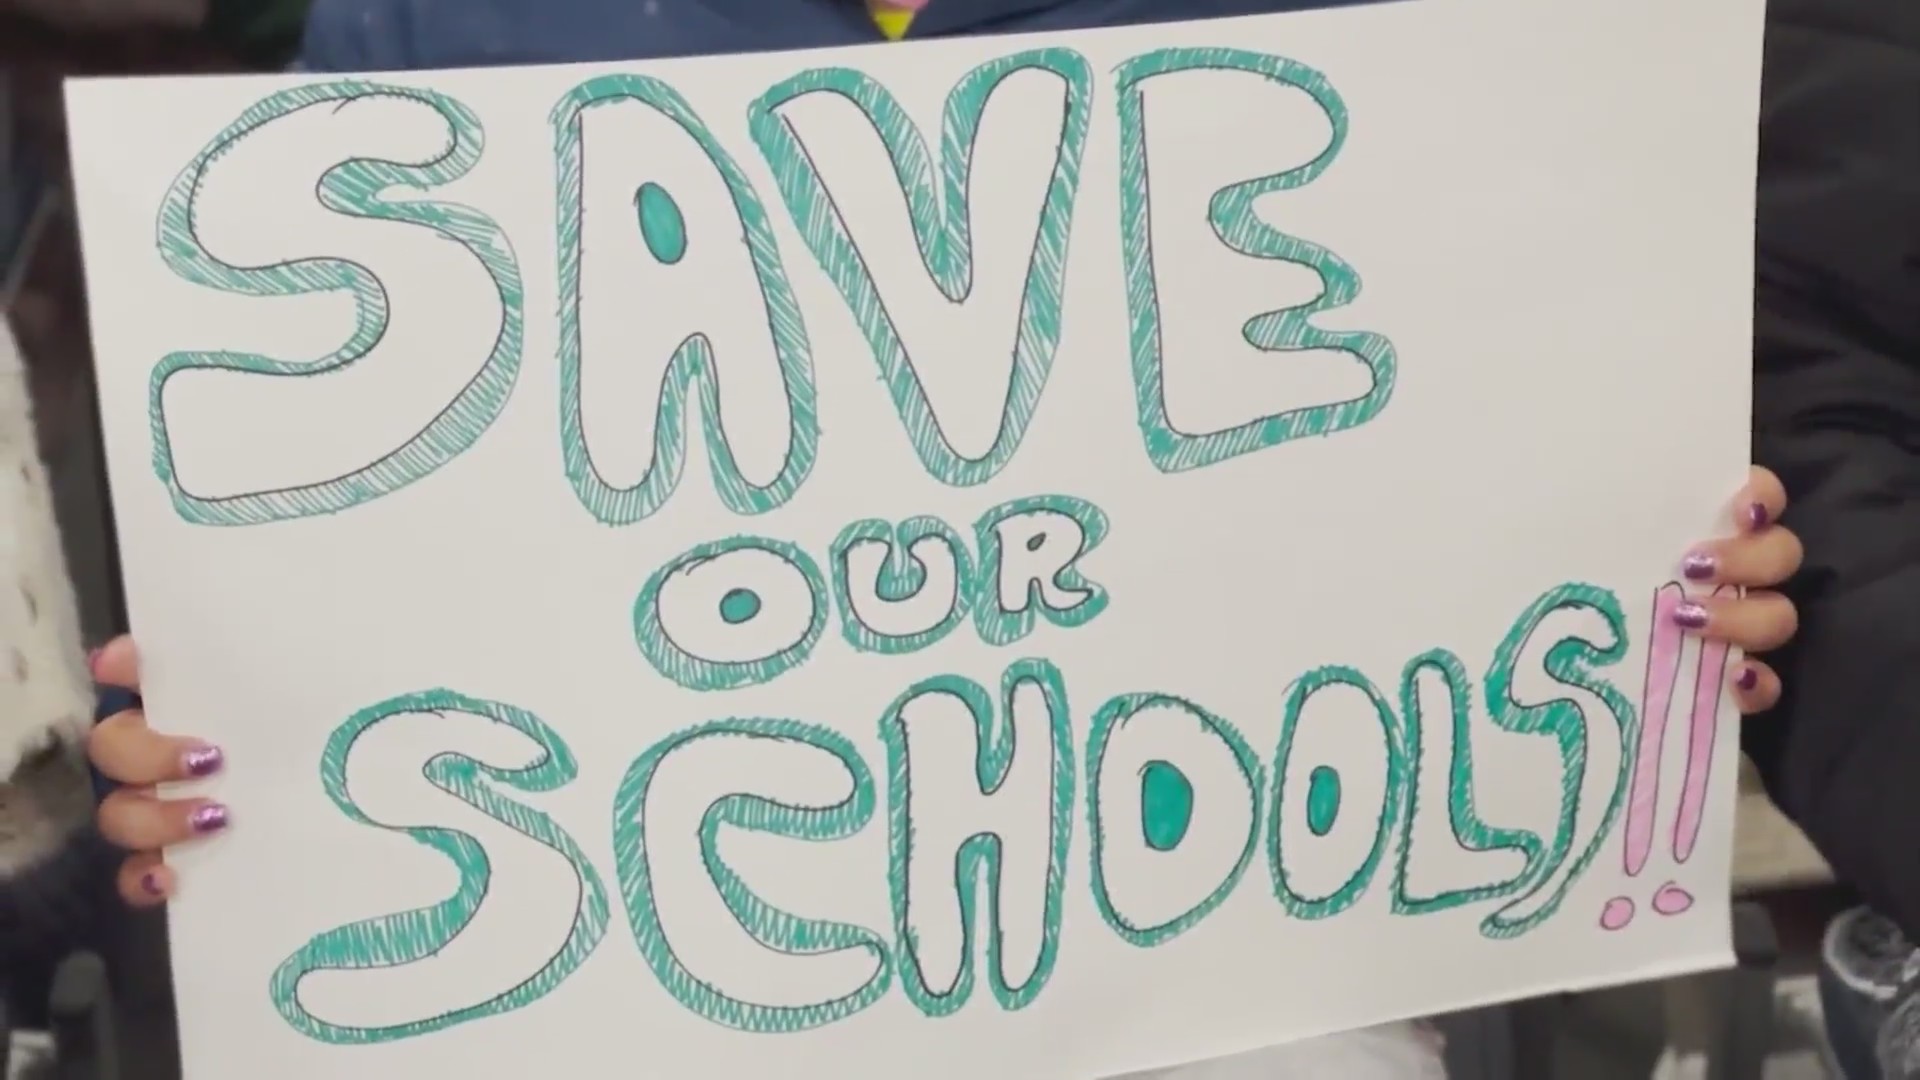 SAVE
OUR
SCHOOLS!!